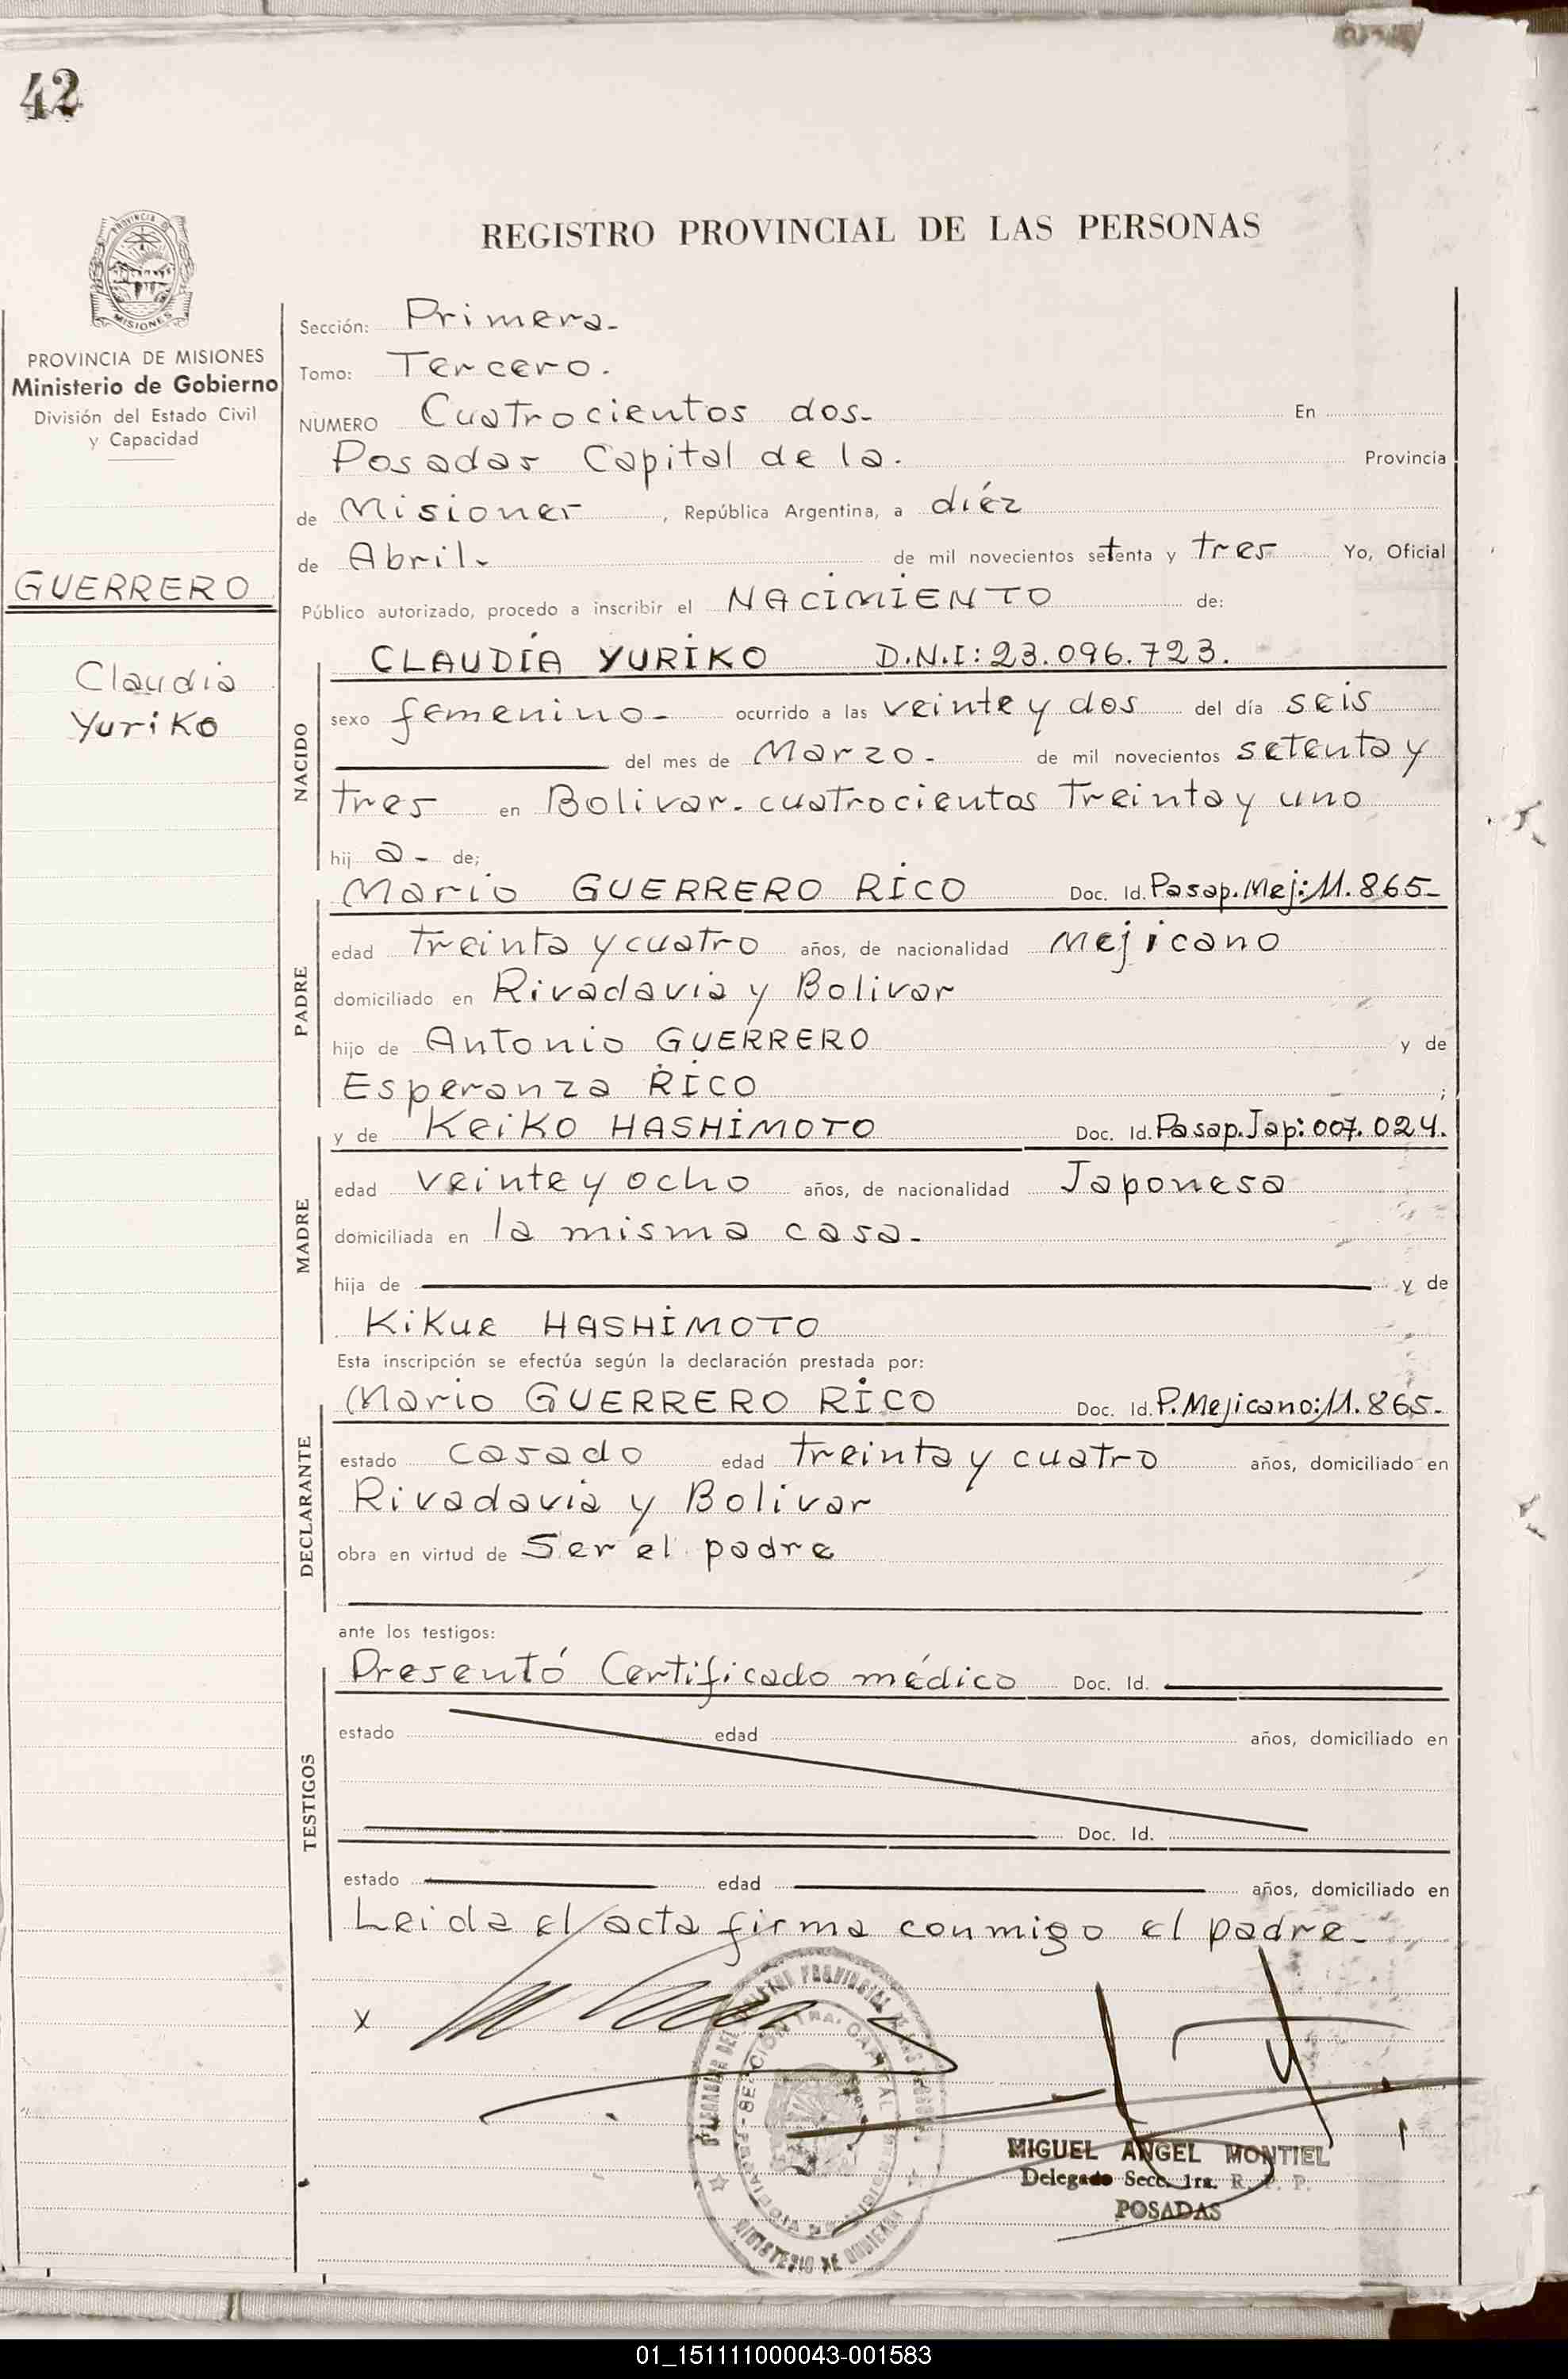 42
PROVINCIA DE MISIONES
Ministerio de Gobierno
División del Estado Civil
y Capacidad
GUERRERO
Claudia
Yuriko
REGISTRO PROVINCIAL DE LAS PERSONAS
Sección: Primera.
Tomo: Tercero.
NUMERO Cuatrocientos dos. En
Posadas Capital de la. Provincia
de Misiones, República Argentina, a diéz
de Abril. de mil novecientos setenta y tres Yo, Oficial
Público autorizado, procedo a inscribir el NACIMIENTO de:
NACIDO
CLAUDIA YURIKO D.N.I: 23.096.723.
sexo femenino- ocurrido a las veinte y dos del día seis
del mes de Marzo. de mil novecientos setenta y
tres en Bolivar. cuatrocientos treinta y uno
hij a- de;
PADRE
Mario GUERRERO RICO Doc. Id. Pasap. Mej: 11.865-
edad treinta y cuatro años, de nacionalidad Mejicano
domiciliado en Rivadavia y Bolivar
hijo de Antonio GUERRERO y de
Esperanza RICO ;
MADRE
y de Keiko HASHIMOTO Doc. Id. Pasap. Jap: 007.024.
edad veinte y ocho años, de nacionalidad Japonesa
domiciliada en la misma casa.
hija de y de
Kikue HASHIMOTO
Esta inscripción se efectúa según la declaración prestada por:
DECLARANTE
Mario GUERRERO RICO Doc. Id. P. Mejicano: 11.865-
estado casado edad treinta y cuatro años, domiciliado en
Rivadavia y Bolivar
obra en virtud de Ser el padre
ante los testigos:
TESTIGOS
Presentó Certificado médico Doc. Id.
estado edad años, domiciliado en
Doc. Id.
estado edad años, domiciliado en
Leida el acta firma conmigo el padre.
X
MIGUEL ANGEL MONTIEL
Delegado Secc. 1ra. R. P. P.
POSADAS
01_151111000043-001583